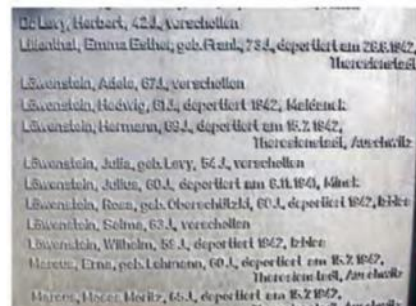 De Levy, Herbert, 42J., verschollen
Lilienthal, Emma Esther, geb. Frank, 73J., deportiert am 26.6.1942,
Theresienstadt
Löwenstein, Adele, 67J., verschollen
Löwenstein, Hedwig, 61J., deportiert 1942, Maidanek
Löwenstein, Hermann, 63J., deportiert am 15.7.1942,
Theresienstadt, Auschwitz
Löwenstein, Julia, geb. Levy, 54J., verschollen
Löwenstein, Julius, 60J., deportiert am 6.11.1941, Minsk
Löwenstein, Rosa, geb. Oberschützki, 60J., deportiert 1942, Izbica
Löwenstein, Selma, 63J., verschollen
Löwenstein, Wilhelm, deportiert 1942, Izbica
Marcus, Erna, geb. Lehmann, 60J., deportiert am 15.7.1942,
Theresienstadt, Auschwitz
Marcus, Moses Moritz, 65J., deportiert am 15.7.1942,